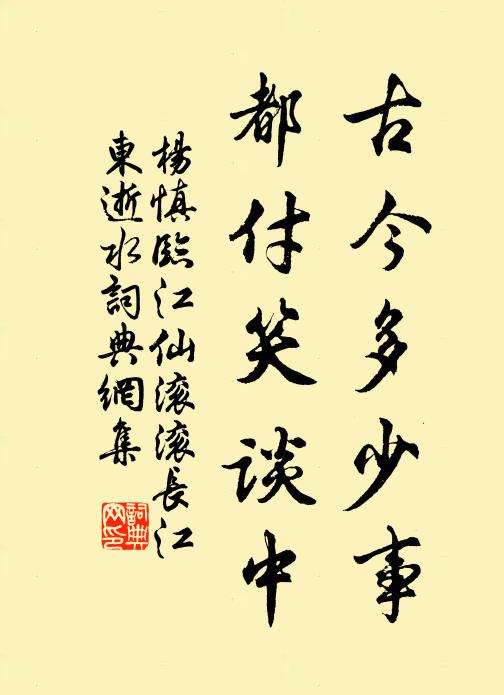 古今多少事
都付笑談中
楊慎臨江仙滚滚長江
東逝水詞典網集
詞典
网印